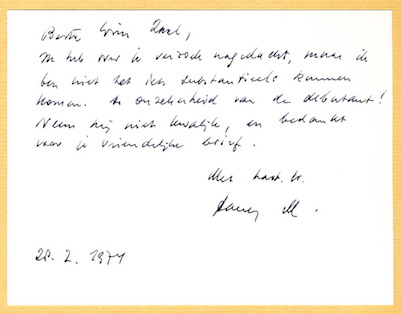 Beste Wim Zaal,
Ik heb over je verzoek nagedacht, maar ik
ben niet tot iets substantieels kunnen
komen. De onzekerheid van de debutant!
Neem mij niet kwalijk, en bedankt
voor je vriendelijke brief.
Met hart. gr.
M.
28. 2. 1974